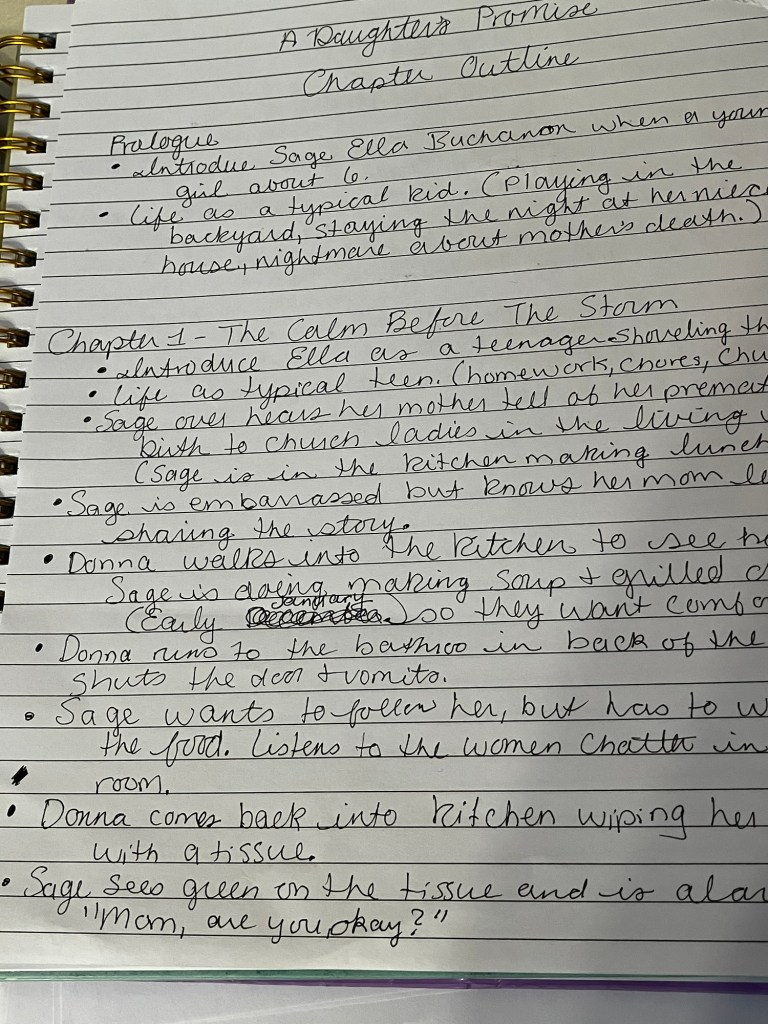 A Daughter's Promise
Chapter Outline
Prologue
• Introdue Sage Ella Buchanon when a youn
girl about 6.
• Life as a typical kid. (Playing in the
backyard, staying the night at her niec
house, nightmare about mother's death.)
Chapter 1 - The Calm Before The Storm
• Introduce Ella as a teenager shoveling th
• Life as typical teen. (homework, chores, Chu
• Sage over hears her mother tell of her premat
birth to church ladies in the living
(Sage is in the kitchen making lunch
• Sage is embarrassed but knows her mom lo
sharing the story.
• Donna walks into the kitchen to see h
Sage is doing making soup + grilled c
January
(Early) so they want comfo
• Donna runs to the bathroo in back of the
shuts the door + vomits.
• Sage wants to follow her, but has to w
the food. Listens to the women chatter in
room.
• Donna comes back into kitchen wiping her
with a tissue.
• Sage sees green on the tissue and is alar
"Mom, are you okay?"